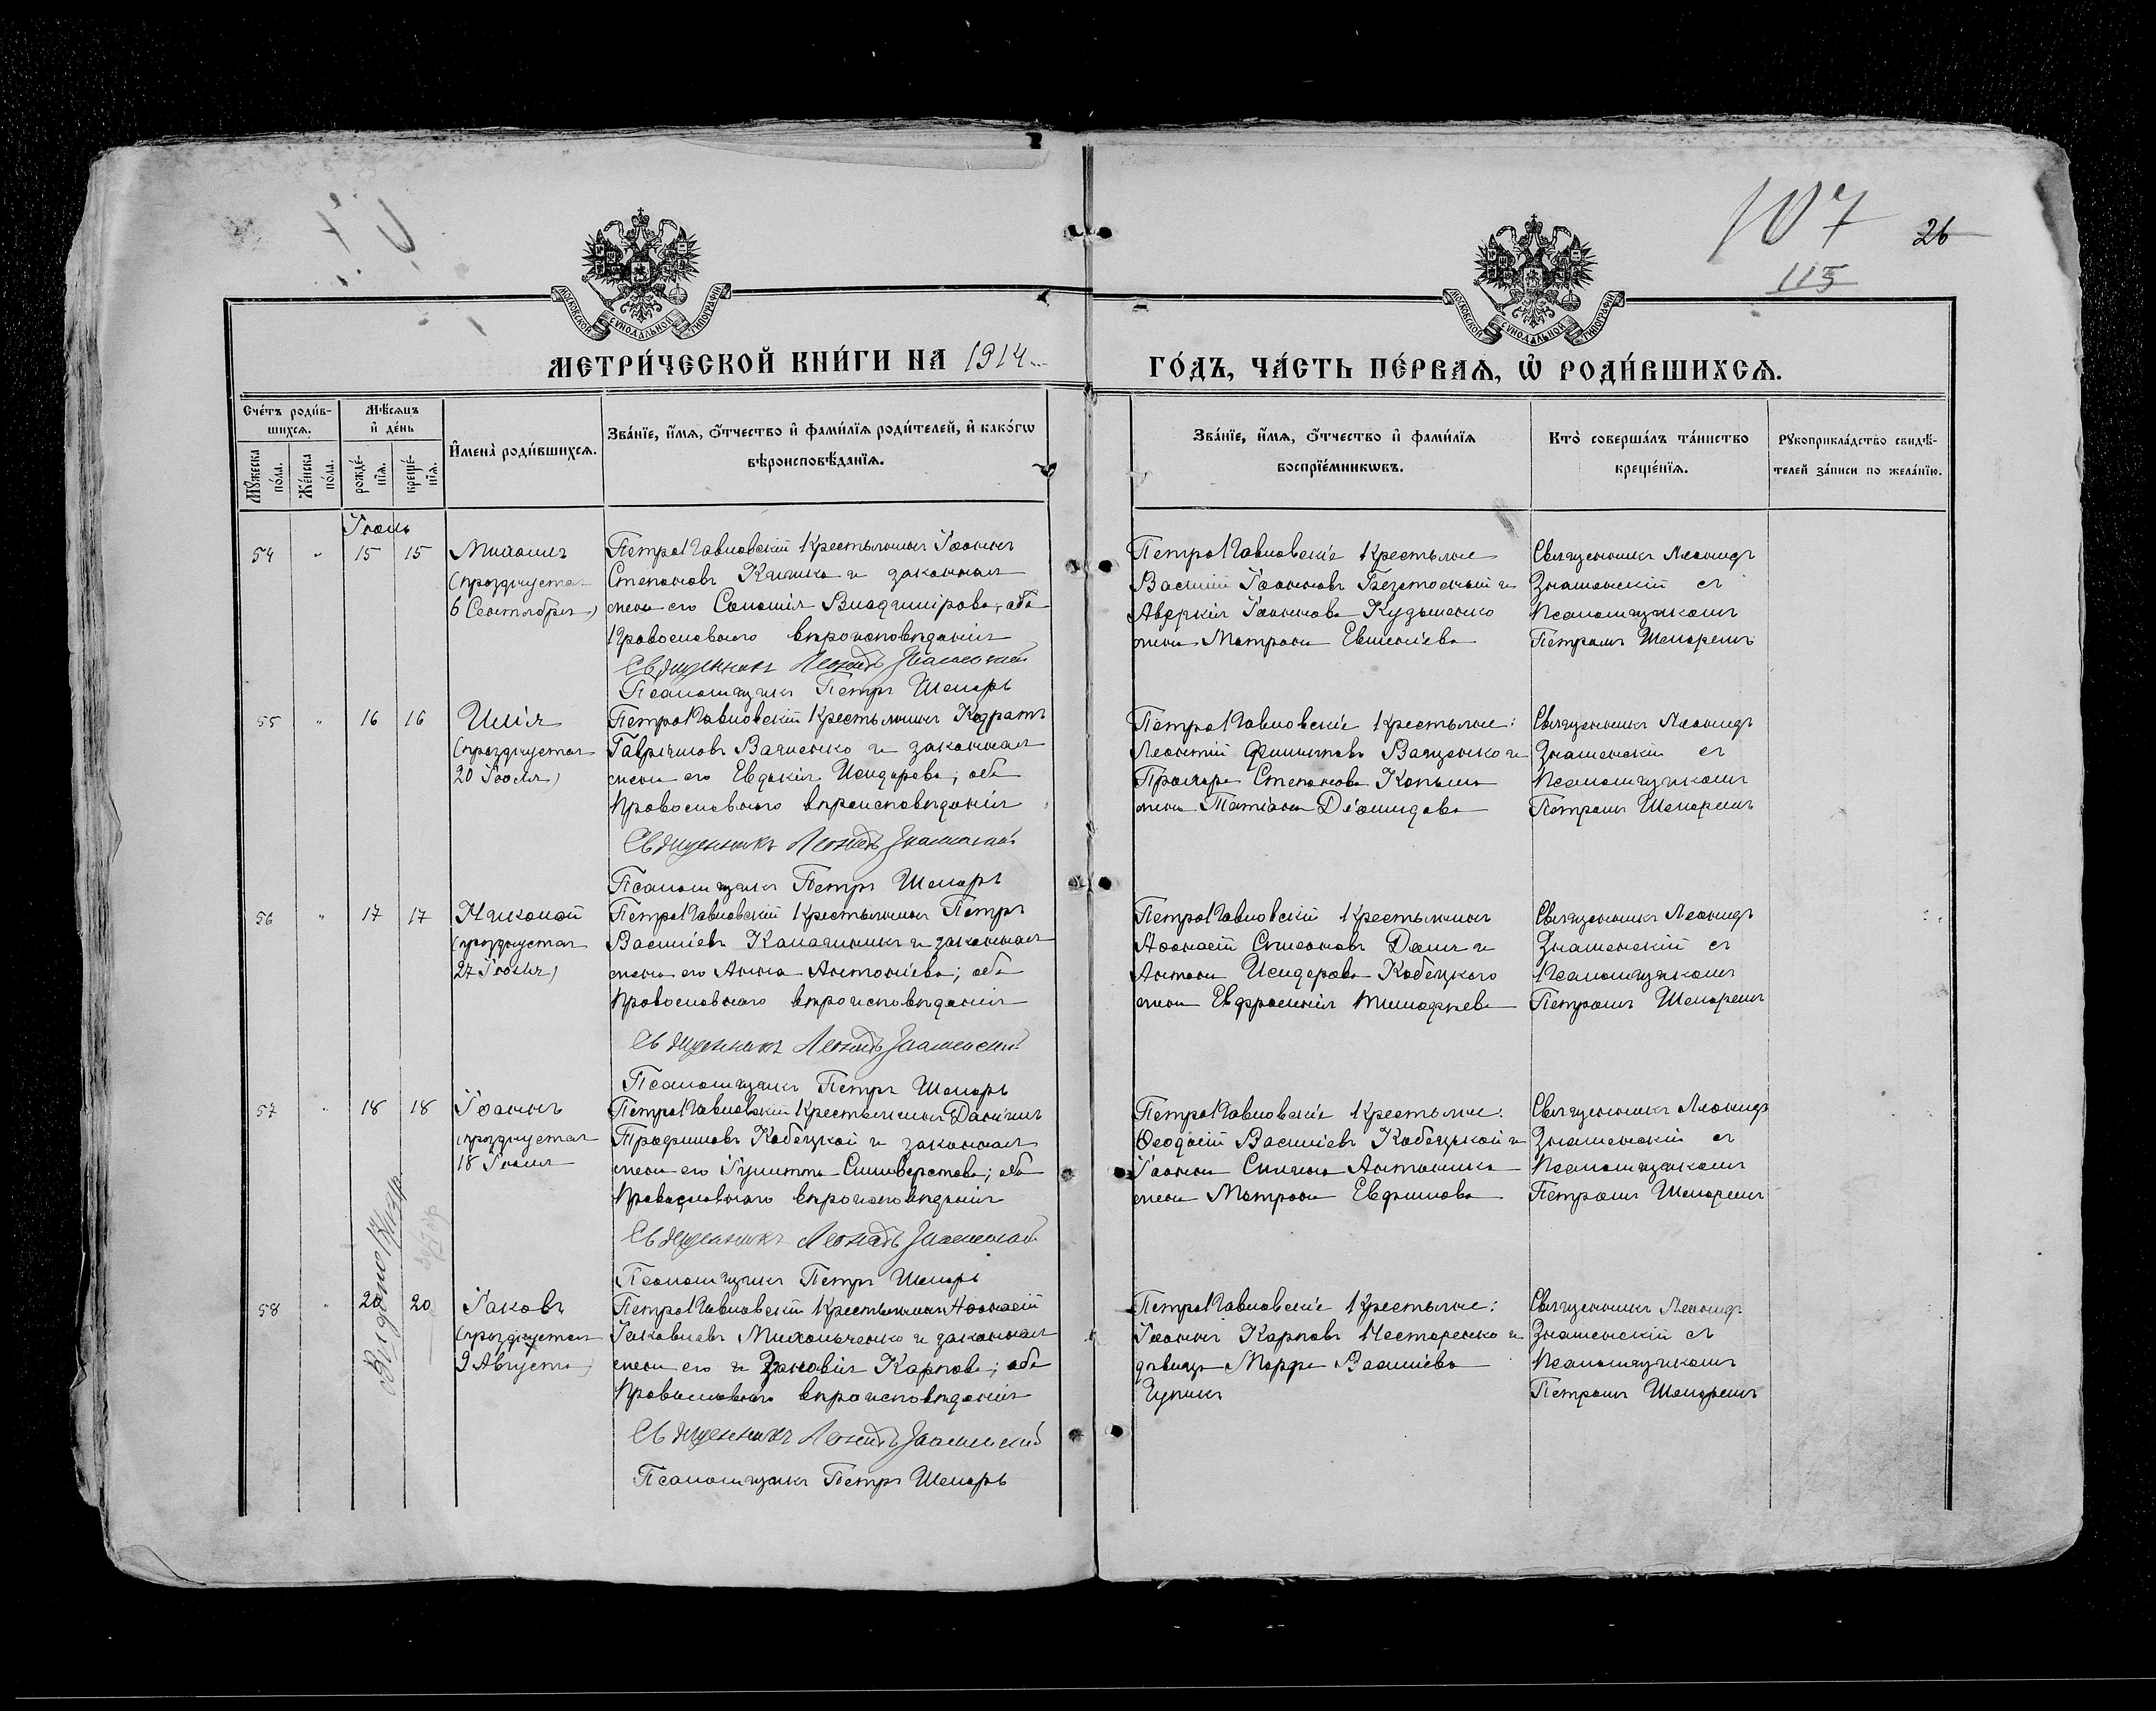 107
26
115
МОСКОВСКОЙ СУНОДАЛЬНОЙ ТИПОГРАФІИ
МОСКОВСКОЙ СУНОДАЛЬНОЙ ТИПОГРАФІИ
МЕТРИ́ЧЕСКОЙ КНИ́ГИ НА 1914
ГО́ДЪ, ЧА́СТЬ ПЕ́РВАѦ, Ѡ҆ РОДИ́ВШИХСѦ.
Сче́тъ роди́в-
шихсѧ.
Мѣ́сѧцъ
и҆ де́нь
И҆мена̀ роди́вшихсѧ.
Зва́нїе, и҆́мѧ, ѻ҆́тчество и҆ фами́лїѧ роди́телей, и҆ како́гѡ
вѣроисповѣ́данїѧ.
Мꙋ́жеска
по́ла.
Же́нска
по́ла.
рожде́-
нїѧ.
креще́-
нїѧ.
Зва́нїе, и҆́мѧ, ѻ҆́тчество и҆ фами́лїѧ
воспрїе́мникѡвъ.
Кто̀ соверша́лъ та́инство
креще́нїѧ.
Рꙋкоприкла́дство свидѣ́-
телей за́писи по жела́нїю.
Іюль
54 " 15 15 Михаилъ
(празднуется
6 Сентября)
ПетроПавловскій крестьянинъ Іоаннъ
Степановъ и законная
жена его Владимірова, оба
Православнаго вѣроисповѣданія
Священникъ Леонидъ Знаменскій
Псаломщикъ Петръ Шепарь
ПетроПавловскіе крестьяне
Василій Іоанновъ и
Аверкія Іоаннова Кузьменко
жена Матрона Евгеніева
Священникъ Леонидъ
Знаменскій съ
Псаломщикомъ
Петромъ Шепаремъ
55 " 16 16 Илія
(празднуется
20 Іюля)
ПетроПавловскій крестьянинъ Кодратъ
Гавріиловъ Ващенко и законная
жена его Евдокія Исидорова, оба
Православнаго вѣроисповѣданія
Священникъ Леонидъ Знаменскій
Псаломщикъ Петръ Шепарь
ПетроПавловскіе крестьяне:
Леонтій Филипповъ Ващенко и
Степанова
жена Татіана Діомидова
Священникъ Леонидъ
Знаменскій съ
Псаломщикомъ
Петромъ Шепаремъ
56 " 17 17 Николай
(празднуется
27 Іюля)
ПетроПавловскій крестьянинъ Петръ
Василіевъ Калашникъ и законная
жена его Анна Антоніева; оба
Православнаго вѣроисповѣданія
Священникъ Леонидъ Знаменскій
Псаломщикъ Петръ Шепарь
ПетроПавловскій крестьянинъ
Аѳанасій и
Антона Исидорова Кобецкаго
жена Евфросинія Тимофѣева
Священникъ Леонидъ
Знаменскій съ
Псаломщикомъ
Петромъ Шепаремъ
57 " 18 18 Іоаннъ
(празднуется
18 Іюля
ПетроПавловскій крестьянинъ Даніилъ
Трофимовъ Кобецкой и законная
жена его Іулитта Силиверстова; оба
Православнаго вѣроисповѣданія
Священникъ Леонидъ Знаменскій
Псаломщикъ Петръ Шепарь
ПетроПавловскіе крестьяне:
Ѳеодосій Василіевъ Кобецкой и
Іоанна
жена Матрона Евфимова
Священникъ Леонидъ
Знаменскій съ
Псаломщикомъ
Петромъ Шепаремъ
58 " 20 20 Іаковъ
(празднуется
9 Августа)
ПетроПавловскій крестьянинъ Аѳанасій
Іаковлевъ Михальченко и законная
жена его и Зиновія Карпова; оба
Православнаго вѣроисповѣданія
Священникъ Леонидъ Знаменскій
Псаломщикъ Петръ Шепарь
ПетроПавловскіе крестьяне:
Іоаннъ Карповъ Нестеренко и
дѣвица Марфа Василіева
Чупикъ
Священникъ Леонидъ
Знаменскій съ
Псаломщикомъ
Петромъ Шепаремъ